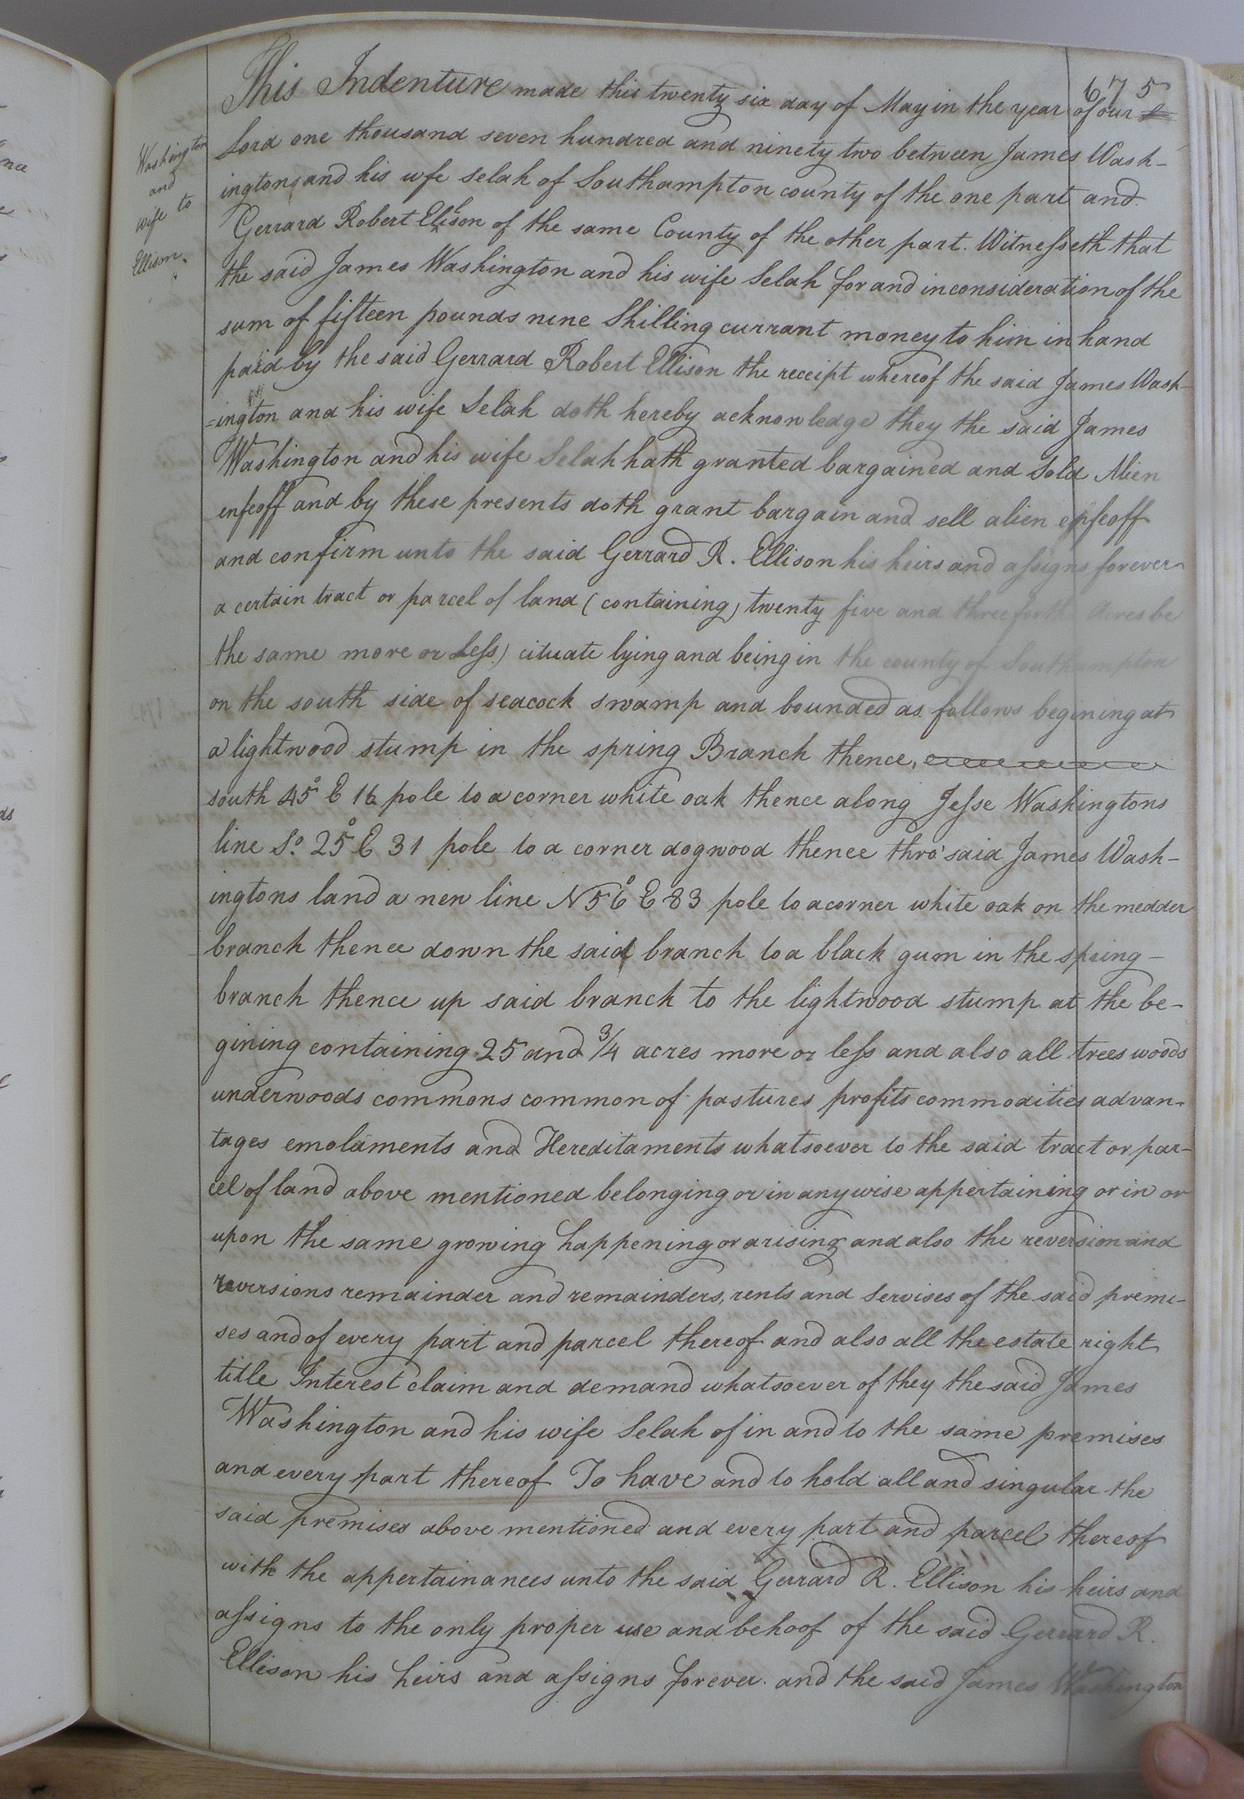 675
This Indenture made this twenty six day of May in the year of our
Lord one thousand seven hundred and ninety two between James Wash-
ington and his wife Selah of Southampton county of the one part and
Gerrard Robert Elison of the same County of the other part. Witnesseth that
the said James Washington and his wife Selah for and inconsideration of the
sum of fifteen pounds nine Shilling currant money to him in hand
paid by the said Gerrard Robert Ellison the receipt whereof the said James Wash-
=ington and his wife Selah doth hereby acknowledge they the said James
Washington and his wife Selah hath granted bargained and Sold Alien
enfeoff and by these presents doth grant bargain and sell alien enfeoff
and confirm unto the said Gerrard R. Ellison his heirs and assigns forever
a certain tract or parcel of land (containing) twenty five and three forth Acres be
the same more or Less) cituate lying and being in the county of Southampton
on the south side of seacock swamp and bounded as follows begining at
a lightwood stump in the spring Branch thence,
south 45° E 16 pole to a corner white oak thence along Jesse Washingtons
line So. 25° E 31 pole to a corner dogwood thence thro' said James Wash-
ingtons land a new line N 56° E 83 pole to a corner white oak on the medder
branch thence down the said branch to a black gum in the spring-
branch thence up said branch to the lightwood stump at the be-
gining containing 25 and 3/4 acres more or less and also all trees woods
underwoods commons common of pastures profits commodities advan-
tages emolaments and Hereditaments whatsoever to the said tract or par-
cel of land above mentioned belonging or in any wise appertaining or in or
upon the same growing happening or arising and also the reversion and
reversions remainder and remainders, rents and Servises of the said premi-
ses and of every part and parcel thereof and also all the estate right
title Interest claim and demand whatsoever of they the said James
Washington and his wife Selah of in and to the same premises
and every part thereof To have and to hold all and singular the
said premises above mentioned and every part and parcel thereof
with the appertainances unto the said Gerrard R. Ellison his heirs and
assigns to the only proper use and behoof of the said Gerrard R.
Ellison his heirs and assigns forever. and the said James Washington
Washington
and
wife to
Ellison.